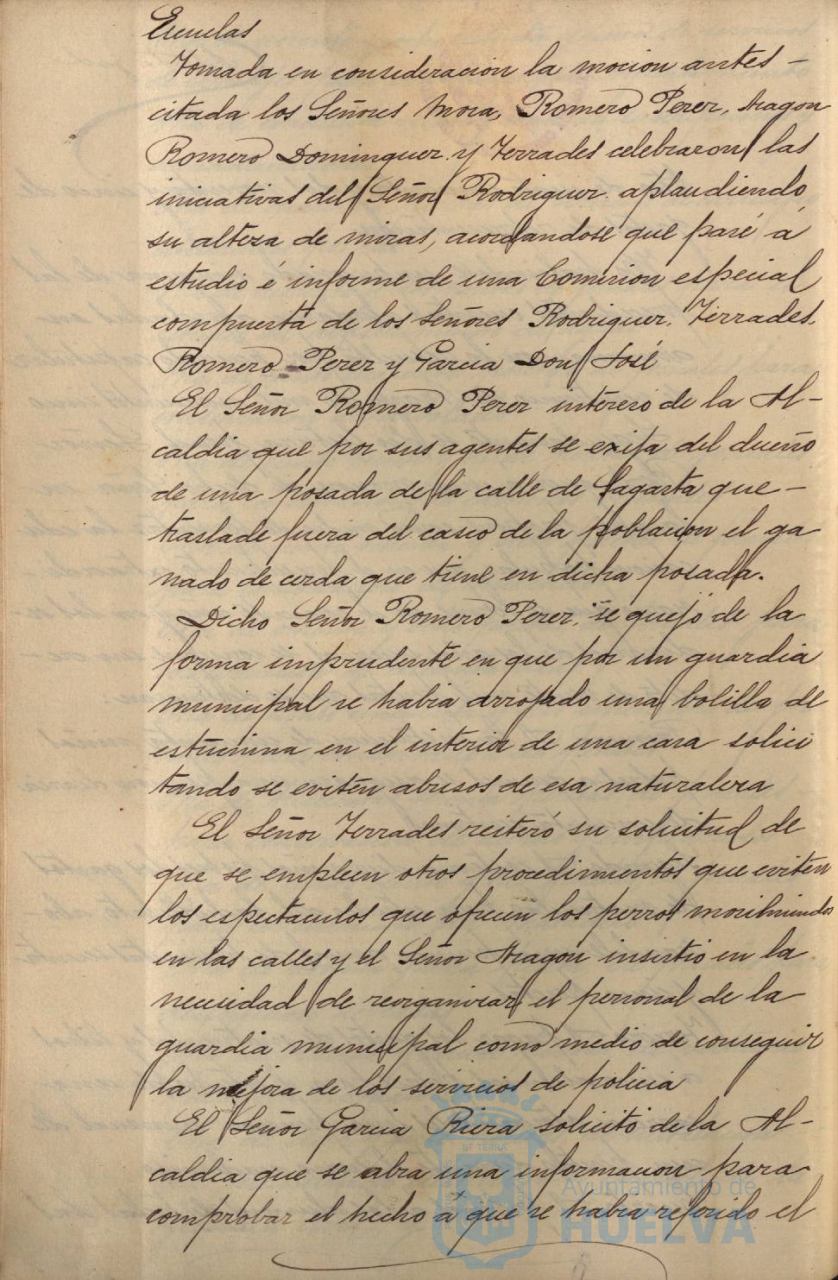 Escuelas
Tomada en consideracion la mocion antes -
citada los Señores Mora, Romero Perez, Aragon
Romero Dominguez y Terrades celebraron las
iniciativas del Señor Rodriguez aplaudiendo
su alteza de miras, acordandose que pase á
estudio é informe de una Comision especial
compuesta de los Señores Rodriguez, Terrades,
Romero Perez y Garcia Don José
El Señor Romero Perez intereso de la Al-
caldia que por sus agentes se exija del dueño
de una posada de la calle de Sagasta que -
traslade fuera del casco de la poblacion el ga
nado de cerda que tiene en dicha posada.
Dicho Señor Romero Perez, se quejó de la
forma imprudente en que por un guardia
municipal se habia arrojado una bolilla de
estricnina en el interior de una casa solici
tando se eviten abusos de esa naturaleza
El Señor Terrades reiteró su solicitud de
que se empleen otros procedimientos que eviten
los espectaculos que ofrecen los perros moribundos
en las calles y el Señor Aragon insistio en la
necesidad de reorganizar el personal de la
guardia municipal como medio de conseguir
la mejora de los servicios de policia
El Señor Garcia Riera solicitó de la Al-
caldia que se abra una informacion para
comprobar el hecho á que se habia referido el
Ayuntamiento de
HUELVA